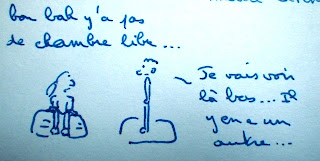 bon bah y'a pas
de chambre libre...
Je vais voir
là bas... Il
y en a un
autre...